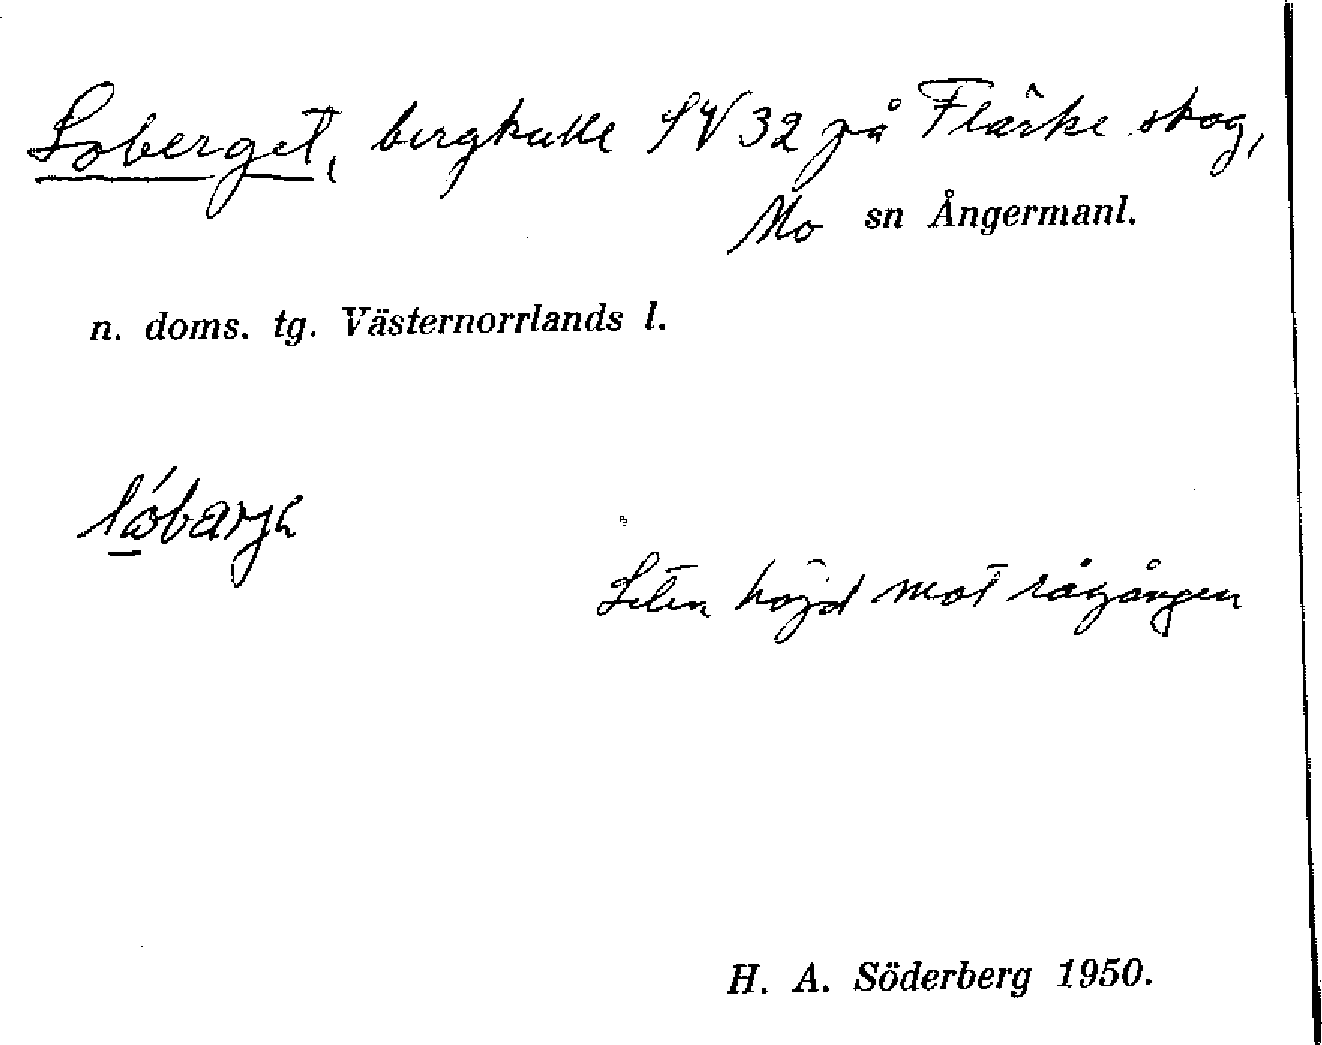 Loberget, bergkulle SV 32 på Flärke skog,
Mo sn Ångermanl.
n. doms. tg. Västernorrlands l.
Liten höjd mot rågången
H. A. Söderberg 1950.